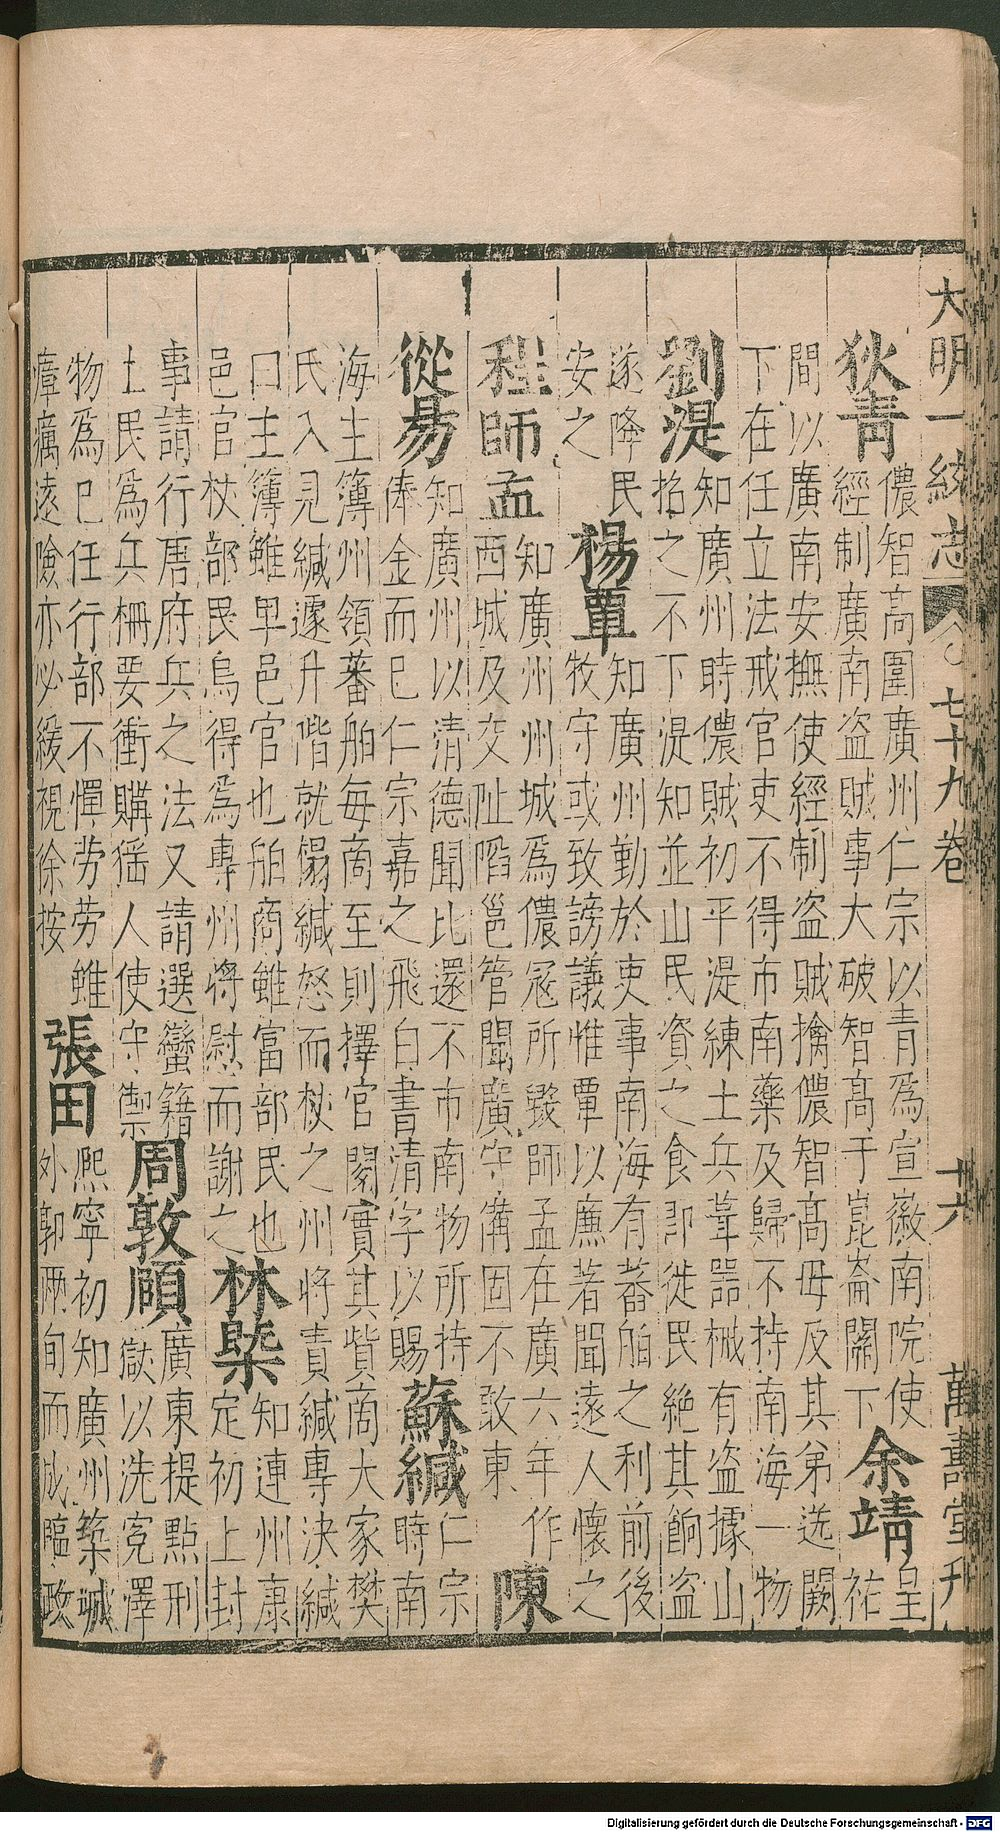 大明一統志 七十九卷 十六 萬壽堂刊
狄青
儂智高圍廣州仁宗以青爲宣徽南院使
經制廣南盗賊事大破智高于崑崙關下
余靖
皇祐
間以廣南安撫使經制盗賊擒儂智高母及其弟选闕
下在任立法戒官吏不得市南藥及歸不持南海一物
劉湜
知廣州時儂賊初平湜練土兵葺噐械有盗據山
招之不下湜知並山民資之食即徙民絶其餉盗
遂降民
安之
楊覃
知廣州勤於吏事南海有蕃舶之利前後
牧守或致謗議惟覃以廉著聞遠人懷之
程師孟
知廣州州城爲儂冦所毀師孟在廣六年作
西城及交阯陷邕管聞廣守備固不敢東
陳
從易
知廣州以清德聞比還不市南物所持
俸金而巳仁宗嘉之飛白書清字以賜
蘇緘
仁宗
時南
海主簿州領蕃舶每啇至則擇官閱實其貲啇大家樊
氏入見緘遽升階就榻緘怒而杖之州将責緘專決緘
口主簿雖卑邑官也舶商雖富部民也
邑官杖部民烏得爲專州將慰而謝之
林㮣
知連州康
定初上封
事請行唐府兵之法又請選蠻籍
土民爲兵栅要衝購猺人使守禦
周敦頤
廣東提點刑
獄以洗寃澤
物爲巳任行部不憚劳劳雖
瘴癘遠險亦必緩視徐按
張田
熈寧初知廣州築城
外郭兩旬而成臨政
Digitalisierung gefördert durch die Deutsche Forschungsgemeinschaft - DFG